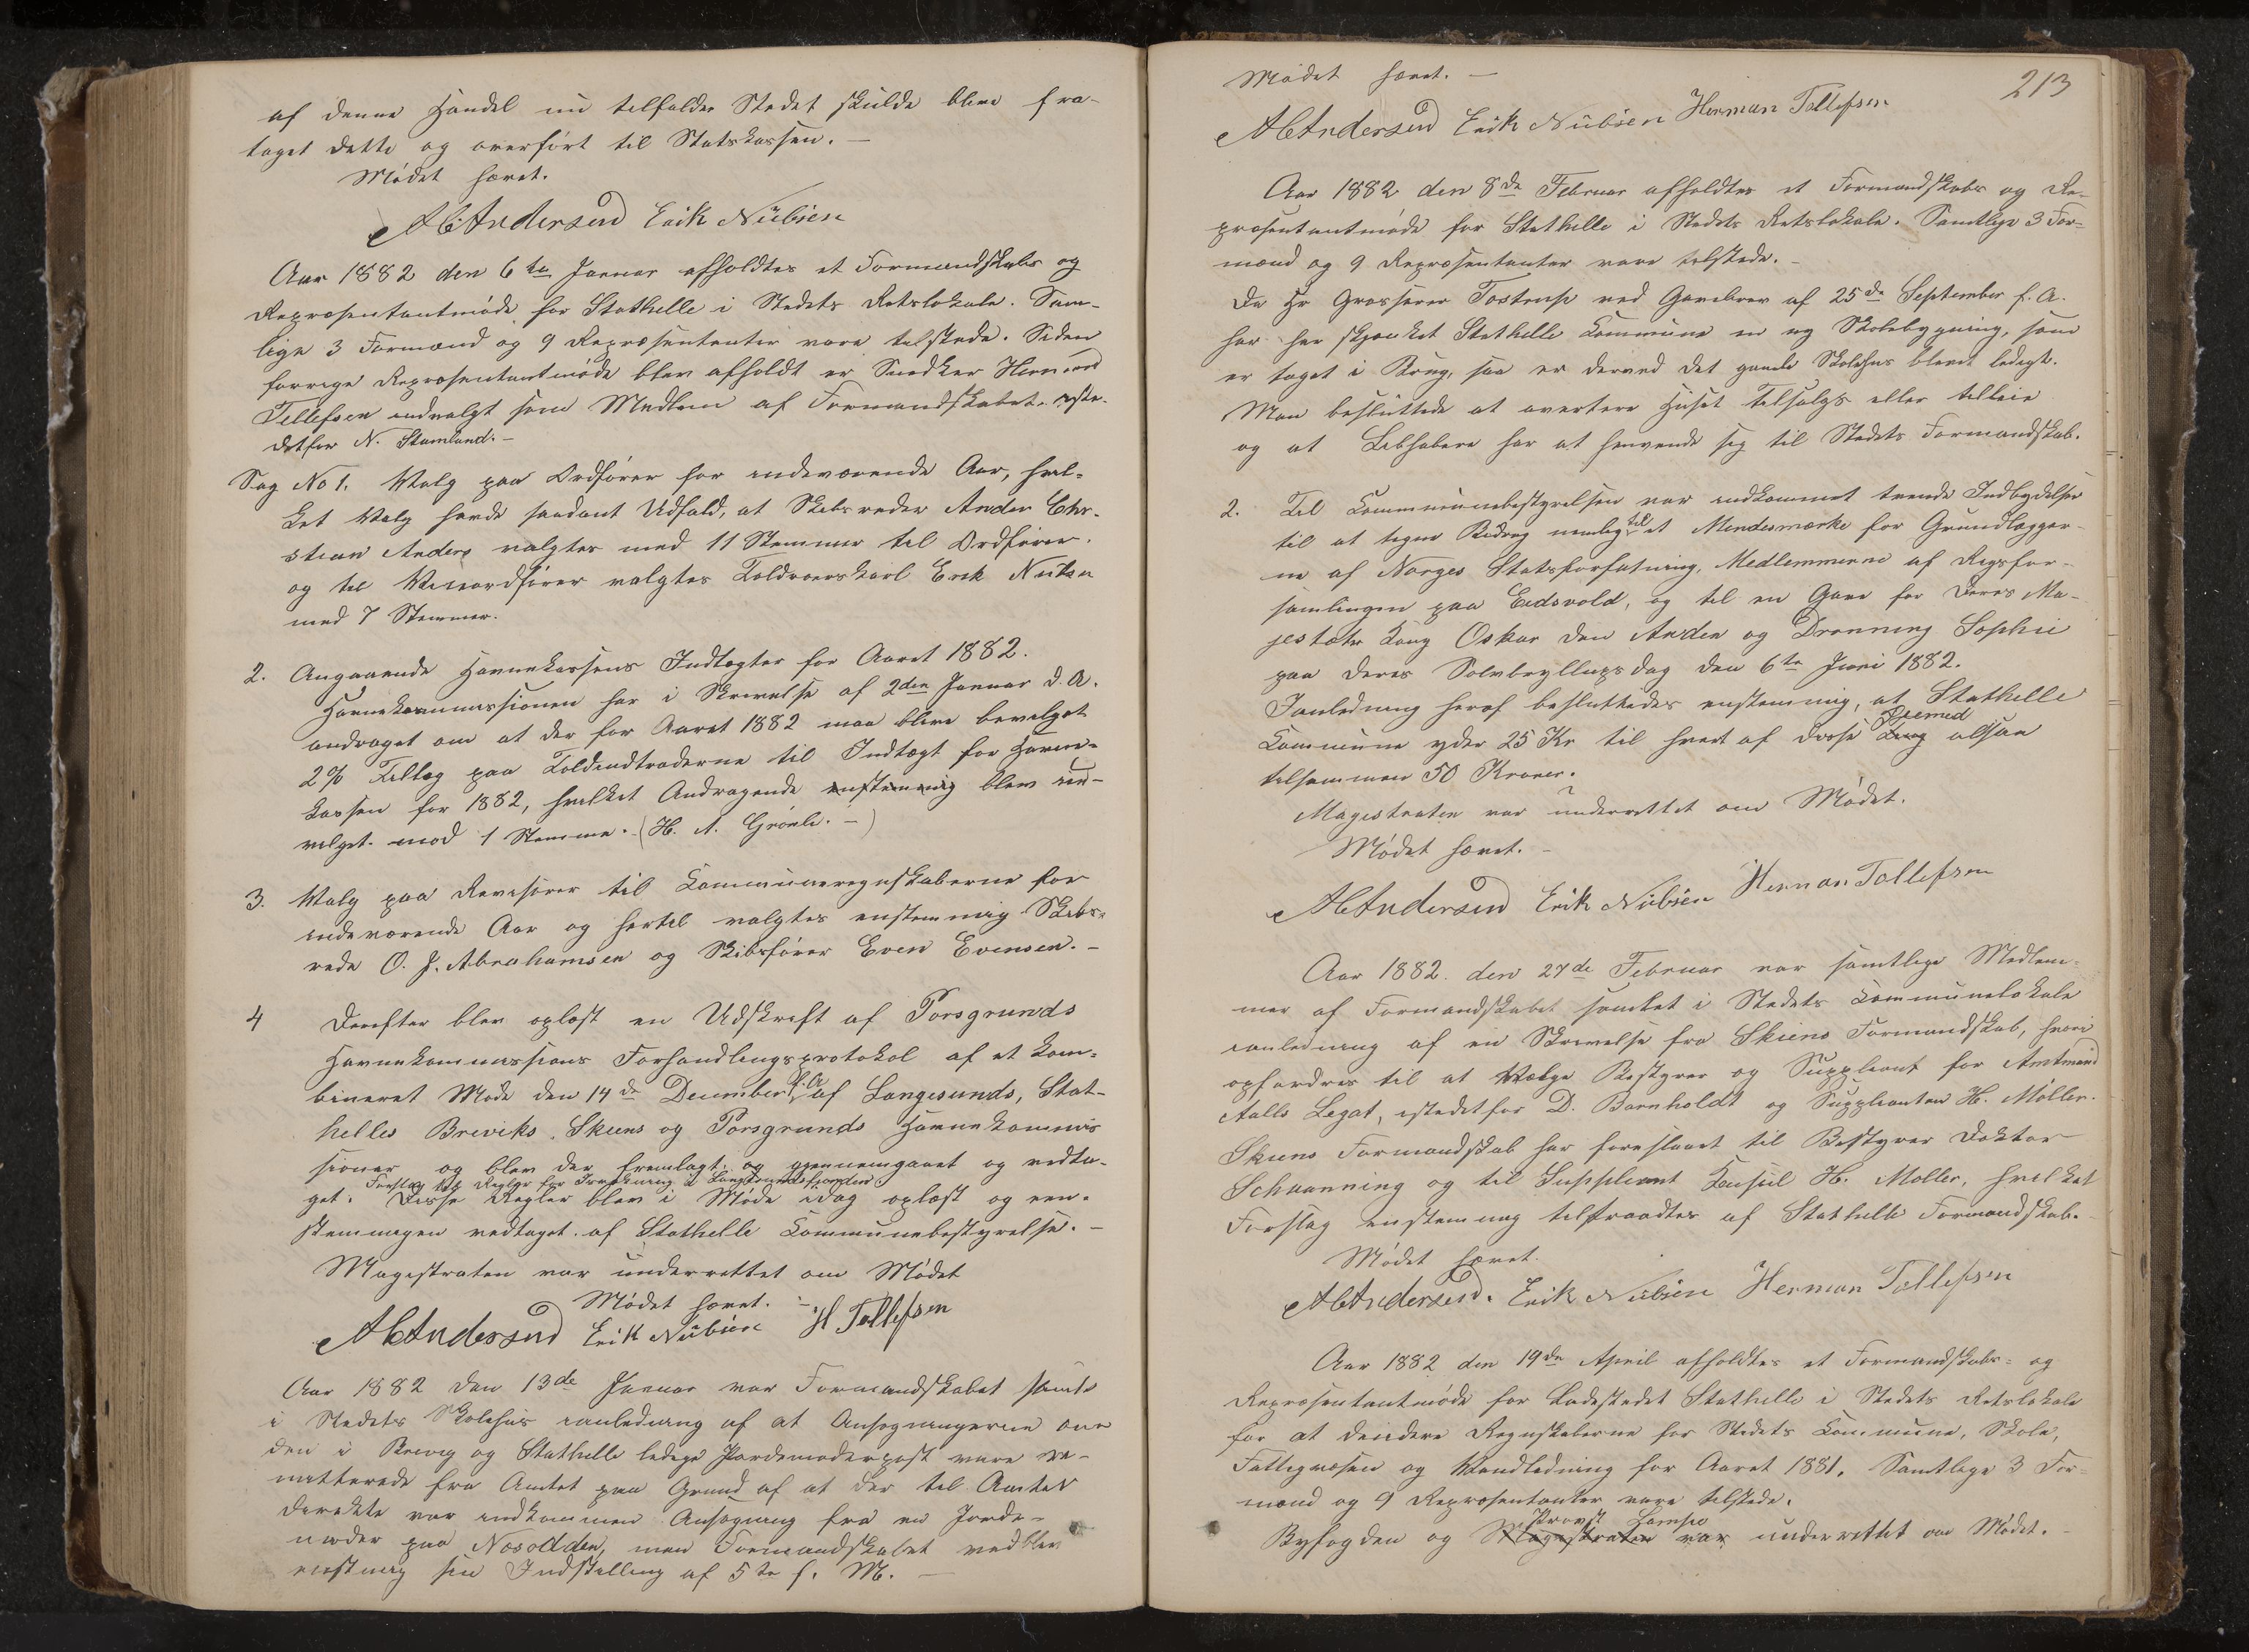 af denne Handel nu tilfalder Stedet skulde blive fra-
taget dette og overført til Statskassen. —
Mødet hævet.
A C Andersen Erik Nübsen
Aar 1882 den 6te Januar afholdtes et Formandskabs og
Repræsentantmøde for Stathelle i Stedets Retslokale. Sam-
lige 3 Formænd og 9 Repræsentanter vare tilstede. Siden
forrige Repræsentantmøde blev afholdt er Snedker Herman
Tellefsen indvalgt som Medlem af Formandskabet iste-
detfor N. Stamland. –
Sag No 1. Valg paa Ordfører for indeværende Aar, hvil-
ket Valg havde saadant Udfald, at Skibsreder Anders Chr-
stian Anders valgtes med 11 Stemmer til Ordfører.
og til Viceordfører valgtes Toldroerskarl Erik Nübsen
med 7 Stemmer.
2. Angaaende Havnekassens Indtægter for Aaret 1882.
Havnekommissionen har i Skrivelse af 2den Januar d. A.
andraget om at der for Aaret 1882 maa blive bevilget
2% Tillæg paa Toldindtraderne til Indtægt for Havne-
kassen for 1882, hvilket Andragende enstemmig blev in-
vilget mod 1 Stemme. (H. A. Grønli. –)
3. Valg paa Revisorer til Kommuneregnskaberne for
indeværende Aar og hertil valgtes enstemmig Skibs-
rede O. J. Abrahamsen og Skibsfører Even Evensen. –
4 Derefter blev oplæst en Udskrift af Porsgrunds
Havnekommissions Forhandlingsprotokol af et kom-
bineret Møde den 14de December f. A. af Langesunds, Stat-
helles Breviks, Skiens og Porsgrunds Havnekommis
sioner og blev der fremlagt og gjennemgaaet og vedta-
Forslag til Regler for Trafikering i Langesundsfjorden
get. Disse Regler blev i Møde idag oplæst og een-
stemmigen vedtaget af Stathelle Kommunebestyrelse. –
Magistraten var underrettet om Mødet
Mødet hævet. –
A C Andersen Erik Nübsen H Tellefsen
Aar 1882 den 13de Januar var Formandskabet samlet
i Stedets Skolehus ianledning af at Ansøgningerne om
den i Brevig og Stathelle ledige Jordemoderpost vare re-
mitterede fra Amtet paa Grund af at der til Amtet
direkte var indkommen Ansøgning fra en Jorde-
moder paa Næsodden, men Formandskabet vedblev
enstemig sin Indstilling af 5te f. M. —
213
Mødet hævet. —
A C Andersen Erik Nübsen Herman Tellefsen
Aar 1882 den 8de Februar afholdtes et Formandskabs og Re-
præsentantmøde for Stathelle i Stedets Retslokale. Samtlige 3 For-
mænd og 9 Repræsentanter vare tilstede. –
Da Hr Grosserer Tostrup ved Gavebrev af 25de September f. A.
har her skjænket Stathelle Kommune en ny Skolebygning, som
er taget i Brug, saa er derved det gamle Skolehus blevet ledigt.
Man besluttede at avertere Huset tilsalgs eller tilleie
og at Liebhabere har at henvende sig til Stedets Formandskab.
2. Til Kommunebestyrelsen var indkommet tvende Indbydelser
til at tegne Bidrag nemlig til et Mindesmærke for Grundlægger-
ne af Norges Statsforfatning, Medlemmerne af Rigsfor-
samlingen paa Eidsvold, og til en Gave for Deres Ma-
jestæter Kong Oskar den Anden og Dronning Sophie
paa Deres Sølvbryllups dag den 6te Juni 1882.
Ianledning heraf besluttedes enstemmig, at Stathelle
Kommune yder 25 Kr til hvert af disse Øiemed altsaa
tilsammen 50 Kroner.
Magistraten var underrettet om Mødet.
Mødet hævet. –
A C Andersen Erik Nübsen Herman Tellefsen
Aar 1882 den 27de Februar var samtlige Medlem-
mer af Formandskabet samlet i Stedets Kommunelokale
ianledning af en Skrivelse fra Skiens Formandskab, hvori
opfordres til at vælge Bestyrer og Suppleant for Amtmand
Aalls Legat, istedetfor D. Bornholdt og Suppleanten H. Møller.
Skiens Formandskab har foreslaaet til Bestyrer Doktor
Schaanning og til Suppleant Konsul H. Møller, hvilket
Forslag enstemmig tiltraadtes af Stathelle Formandskab.
Mødet hævet.
A C Andersen. Erik Nübsen Herman Tellefsen
Aar 1882 den 19de April afholdtes et Formandskabs- og
Repræsentantmøde for Ladestedet Stathelle i Stedets Retslokale
for at decidere Regnskaberne for Stedets Kommune, Skole,
Fattigvæsen og Vandledning for Aaret 1881. Samtlige 3 For-
mænd og 9 Repræsentanter vare tilstede.
Provst
Byfogden og Magistraten var underrettet om Mødet.